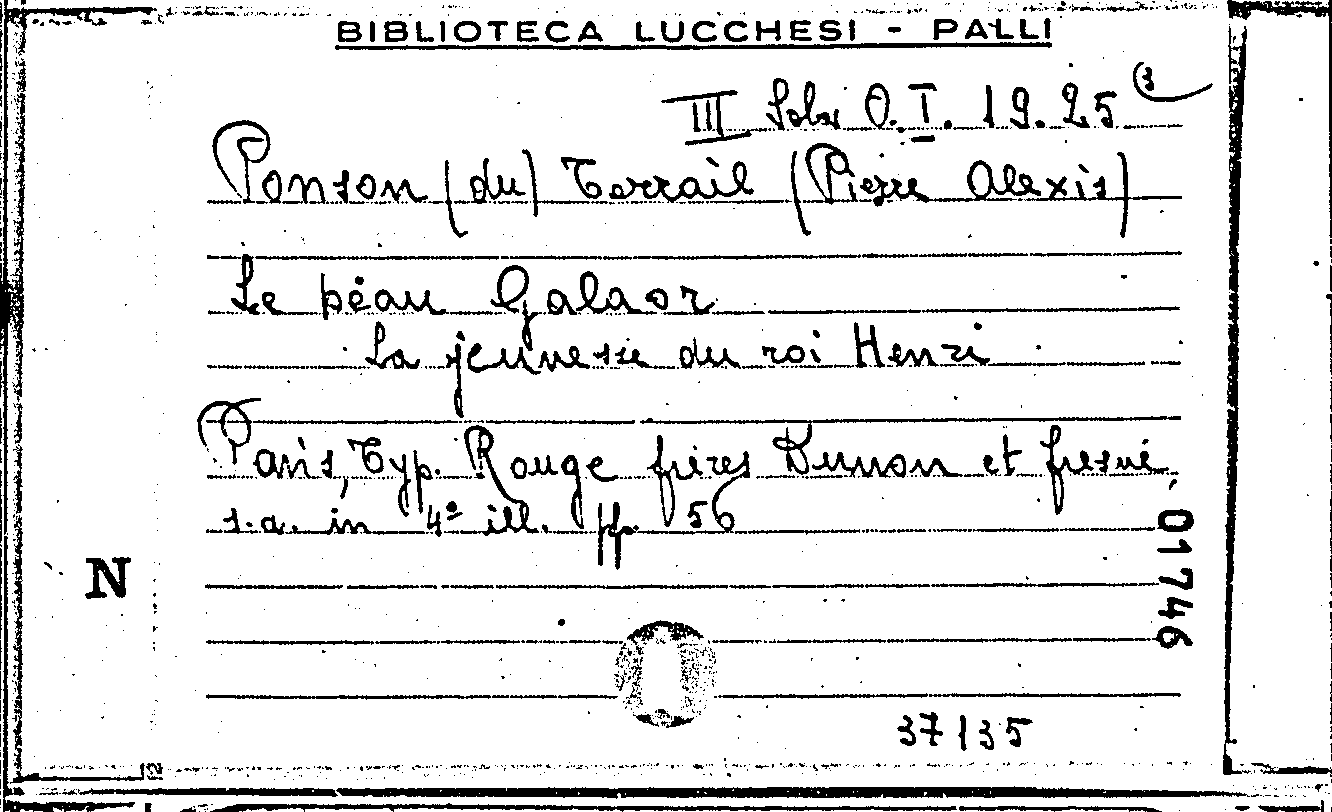 BIBLIOTECA LUCCHESI - PALLI
III Sala O.I. 19.25 (3
Ponson (du) Terrail (Pierre Alexis)
Le béau Galaor
La jeunesse du roi Henri
Paris, Typ. Rouge frères Dunon et fresné,
s.a. in 4º ill. pp. 56
N
01746
37135